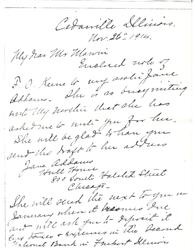 Cedarville Illinois.
Nov. 26th, 1914.
My dear Mr
Enclosed note of
F. O. to my aunt, Jane
Addams. She is so busy
with my mother that she has
asked me to write you for her.
She will be glad to have you
send the Draft to her address
Jane Addams
Hull House
800 South Halsted Street
Chicago.
She will send the rest to you in
January when it becomes Due
and will ask you to deposit it
in the Second
National Bank in Freeport Illinois